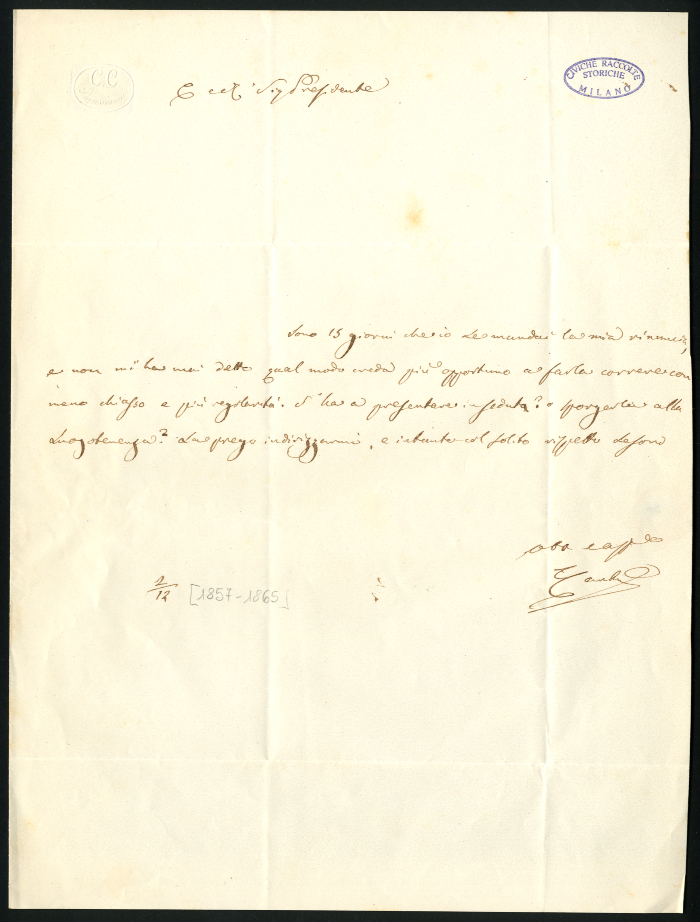 C C
CIVICHE RACCOLTE
STORICHE
MILANO
Ecc. Sig Presidente
Sono 15 giorni che io Le mandai la mia rinuncia,
e non m'ha mai detto qual modo creda più opportuno a farla correre con
meno chiasso e più regolarità. S'ha a presentare in seduta? o sporgerla alla
Luogotenenza? La prego indirizzarmi, e intanto col solito rispetto Le sono
obb e aff
Cantù
2/12 [1857-1865]